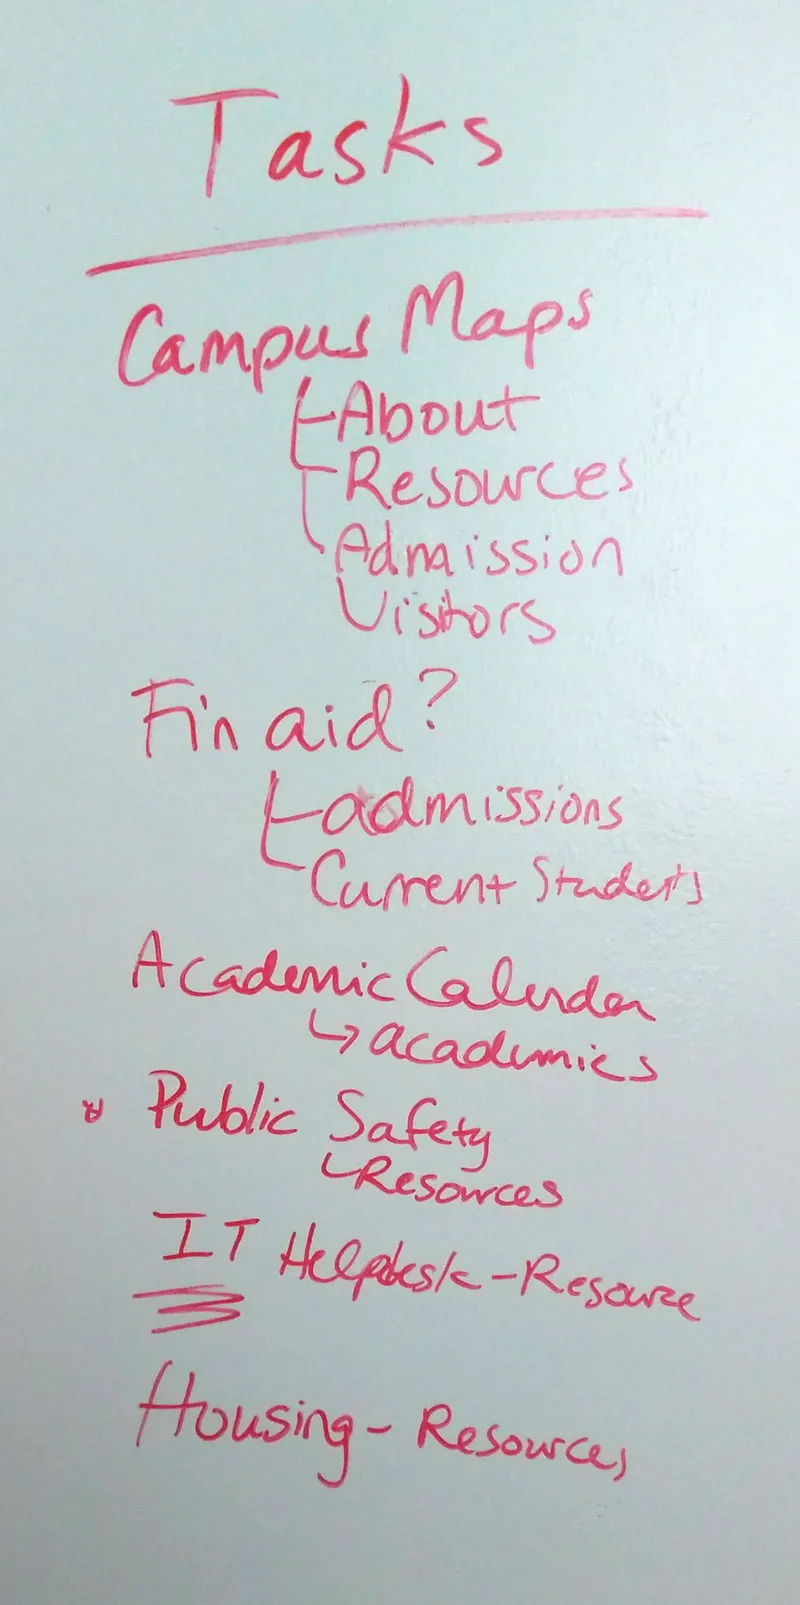 Tasks
Campus Maps
About
Resources
Admission
Visitors
Fin aid?
admissions
Current Students
Academic Calendar
academics
Public Safety
Resources
IT Helpdesk - Resource
Housing - Resources